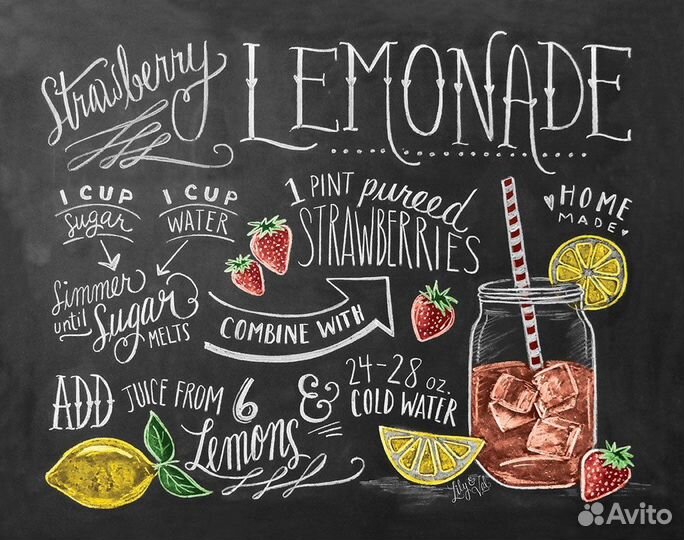 Strawberry LEMONADE
1 CUP sugar
1 CUP WATER
Simmer
until Sugar
MELTS
COMBINE WITH
1 PINT pureed
STRAWBERRIES
HOME
MADE
ADD JUICE FROM 6
Lemons
& 24-28 oz.
COLD WATER
Lily & Val
Avito